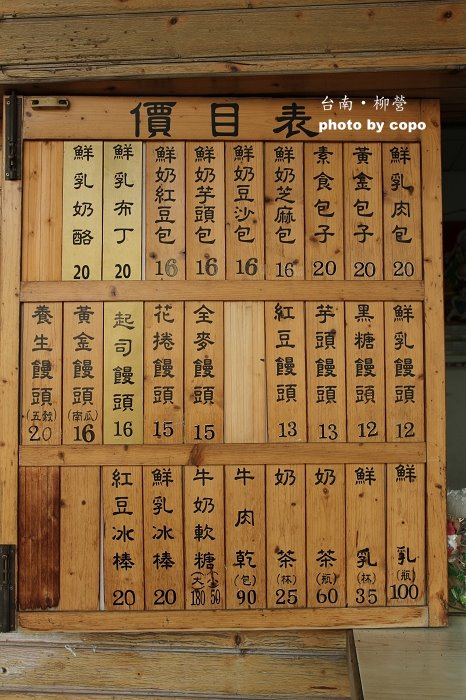 價目表
台南・柳營
photo by copo
鮮乳肉包 20
黃金包子 20
素食包子 20
鮮奶芝麻包 16
鮮奶豆沙包 16
鮮奶芋頭包 16
鮮奶紅豆包 16
鮮乳布丁 20
鮮乳奶酪 20
鮮乳饅頭 12
黑糖饅頭 12
芋頭饅頭 13
紅豆饅頭 13
全麥饅頭 15
花捲饅頭 15
起司饅頭 16
黃金饅頭(南瓜) 16
養生饅頭(五穀) 20
鮮乳(瓶) 100
鮮乳(杯) 35
奶茶(瓶) 60
奶茶(杯) 25
牛肉乾(包) 90
牛奶軟糖(大)180 (小)50
鮮乳冰棒 20
紅豆冰棒 20